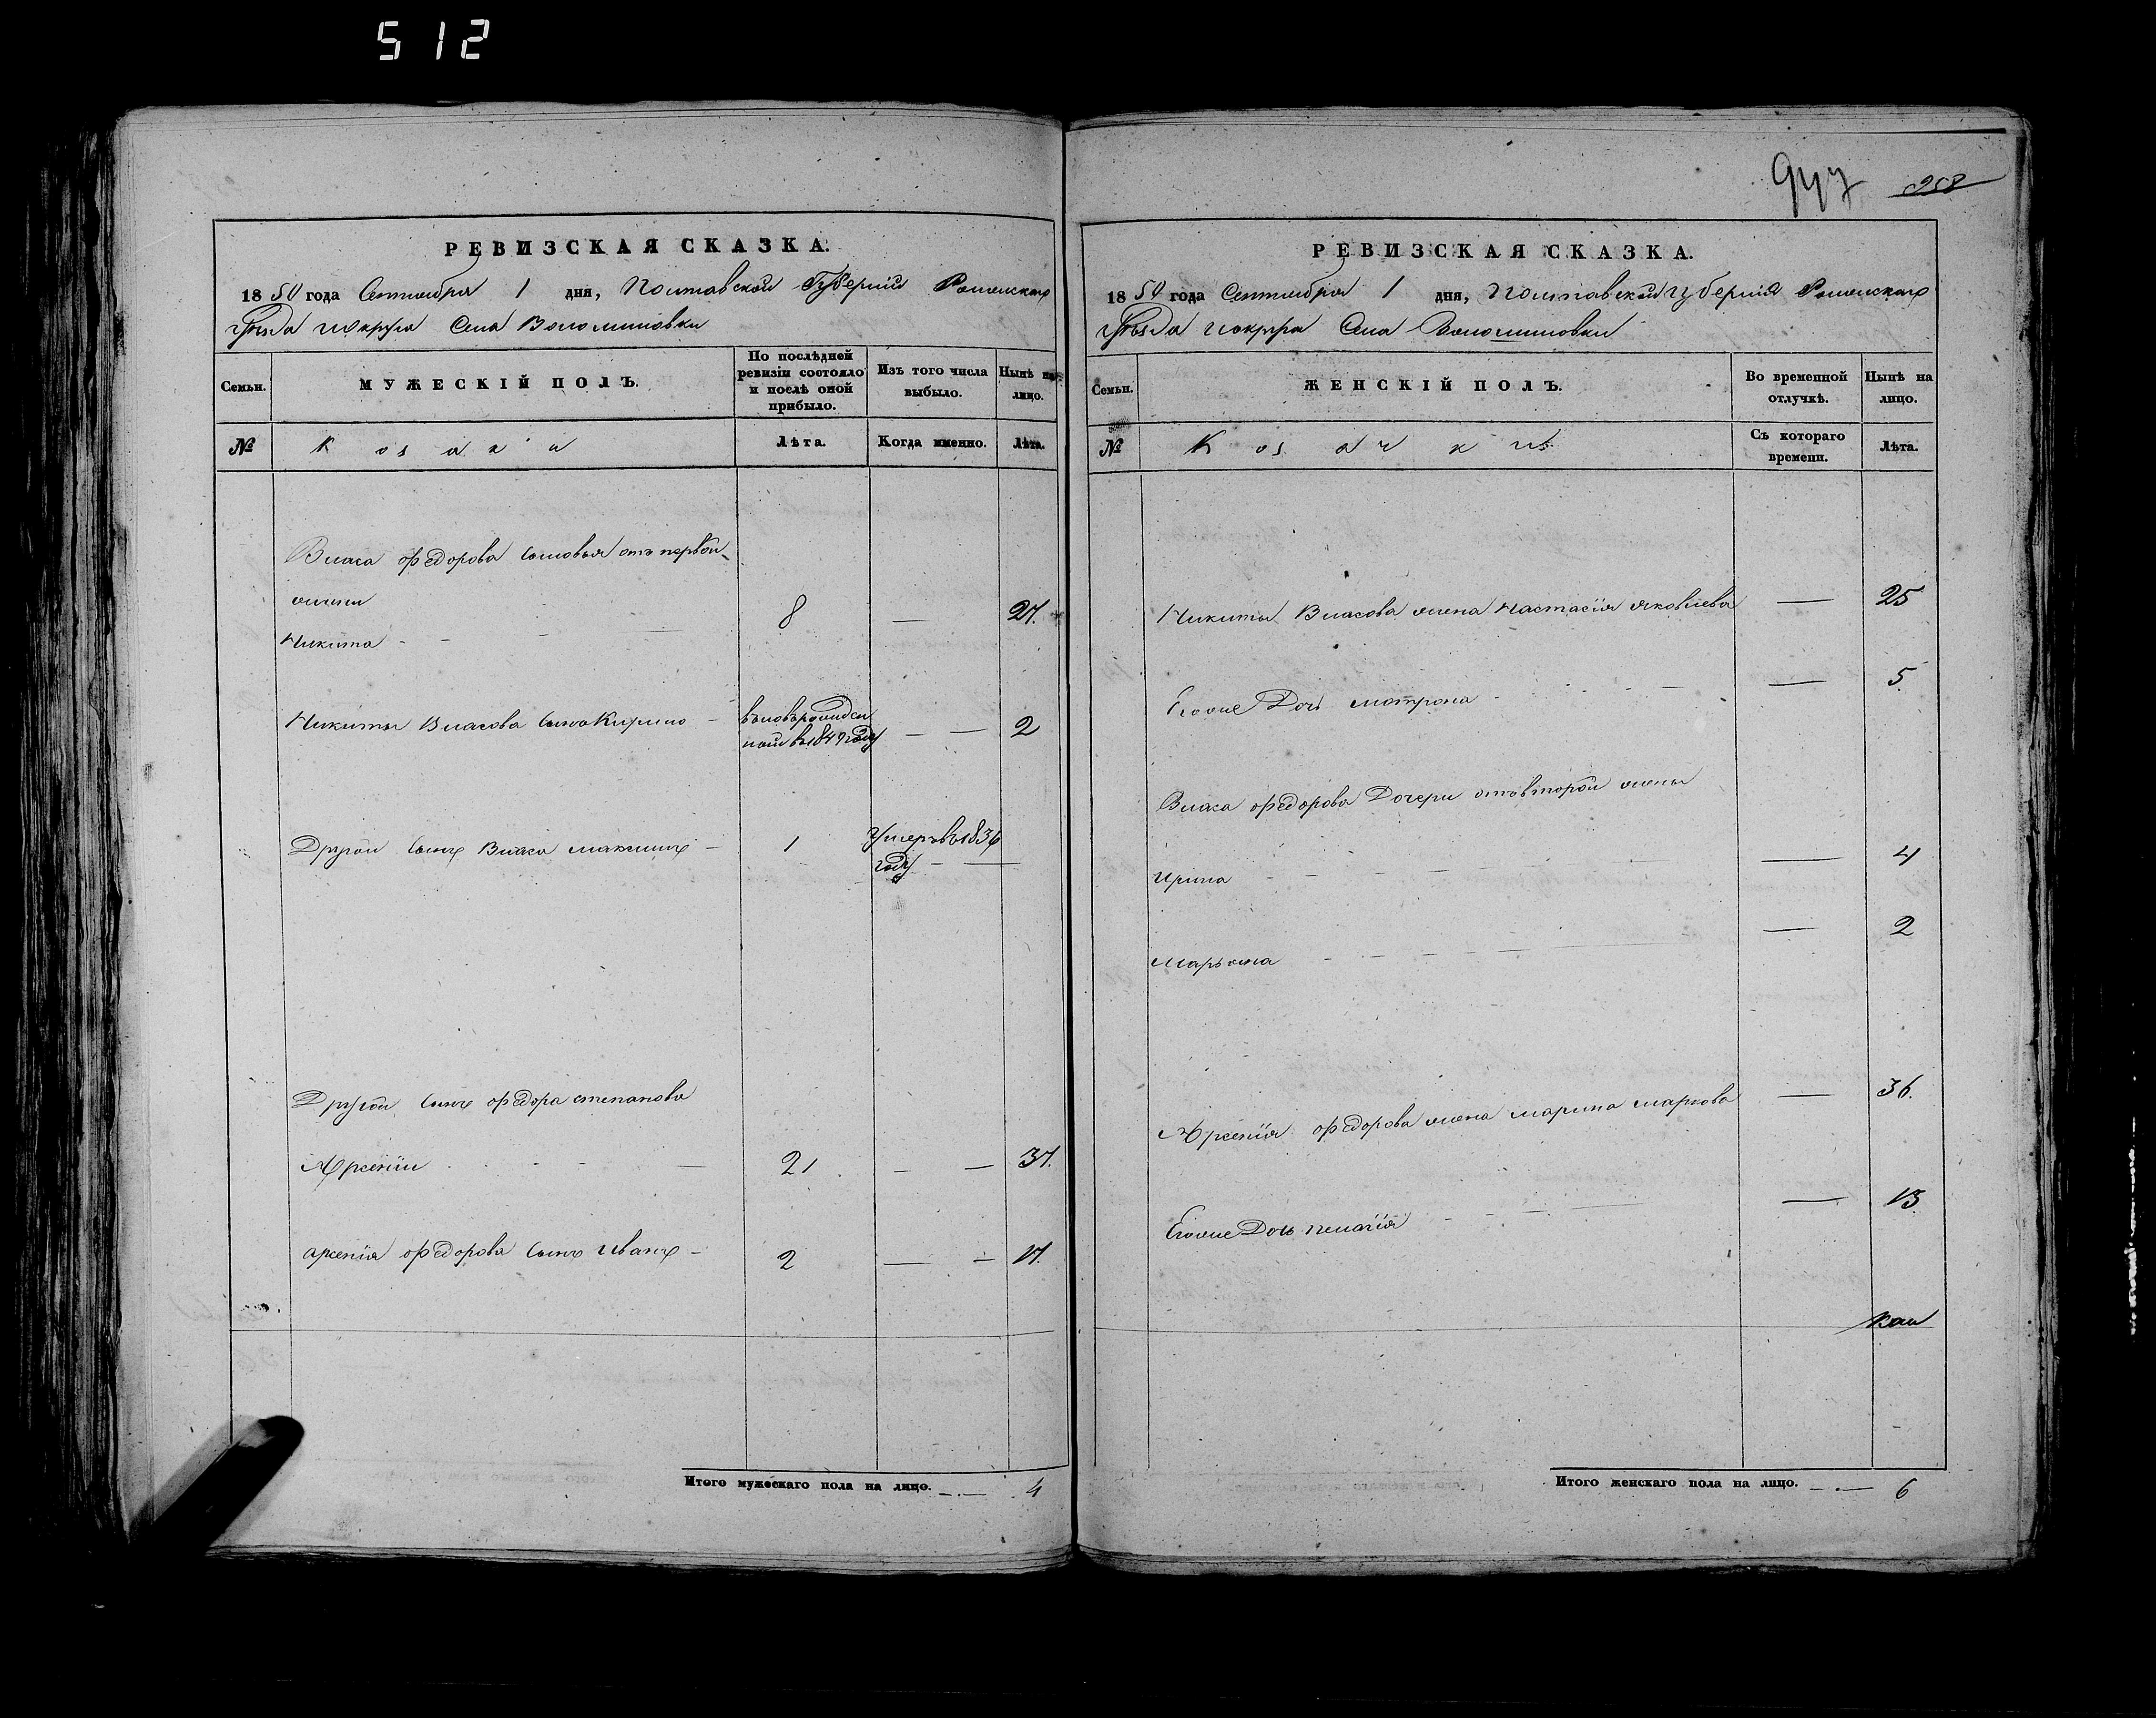 512
958
РЕВИЗСКАЯ СКАЗКА.
1850 года Сентября 1 дня, Полтавской Губернии Роменскаго
уѣзда и округа Села Волошиновки
Семьи.
МУЖЕСКІЙ ПОЛЪ.
По послѣдней ревизіи состояло и послѣ оной прибыло.
Изъ того числа выбыло.
Нынѣ на лицо.
№
Козаки
Лѣта.
Когда именно.
Лѣта.
Власа Федорова сыновья отъ первой
жены
Никита - - - — 8 — 27.
Никиты Власова сынъ Кирило —
вновь рожден
ной въ 1849 году — — 2
Другой сынъ Власа Максимъ — 1
Умеръ въ 1836
году — —
Другой сынъ Федора Степанова
Арсеній - - - — 21 — — 37.
Арсенія Федорова сынъ Иванъ — 2 — — 17.
Итого мужескаго пола на лицо. — 4
РЕВИЗСКАЯ СКАЗКА.
1850 года Сентября 1 дня, Полтавской губернія Роменскаго
уѣзда и округа Села Волошиновки
Семьи.
ЖЕНСКІЙ ПОЛЪ.
Во временной отлучкѣ.
Нынѣ на лицо.
№
Козачки
Съ котораго времени.
Лѣта.
Никиты Власова жена Настасія Яковлева — 25
Егоже Дочь Матрона - - - — — 5.
Власа Федорова Дочери отъ второй жены
Ирина - - - - - — 4
Марьяна - - - - — — 2
Арсенія Федорова жена Марина Маркова — 36.
Егоже Дочь Пелагія - - - — — 13
Итого женскаго пола на лицо. — 6